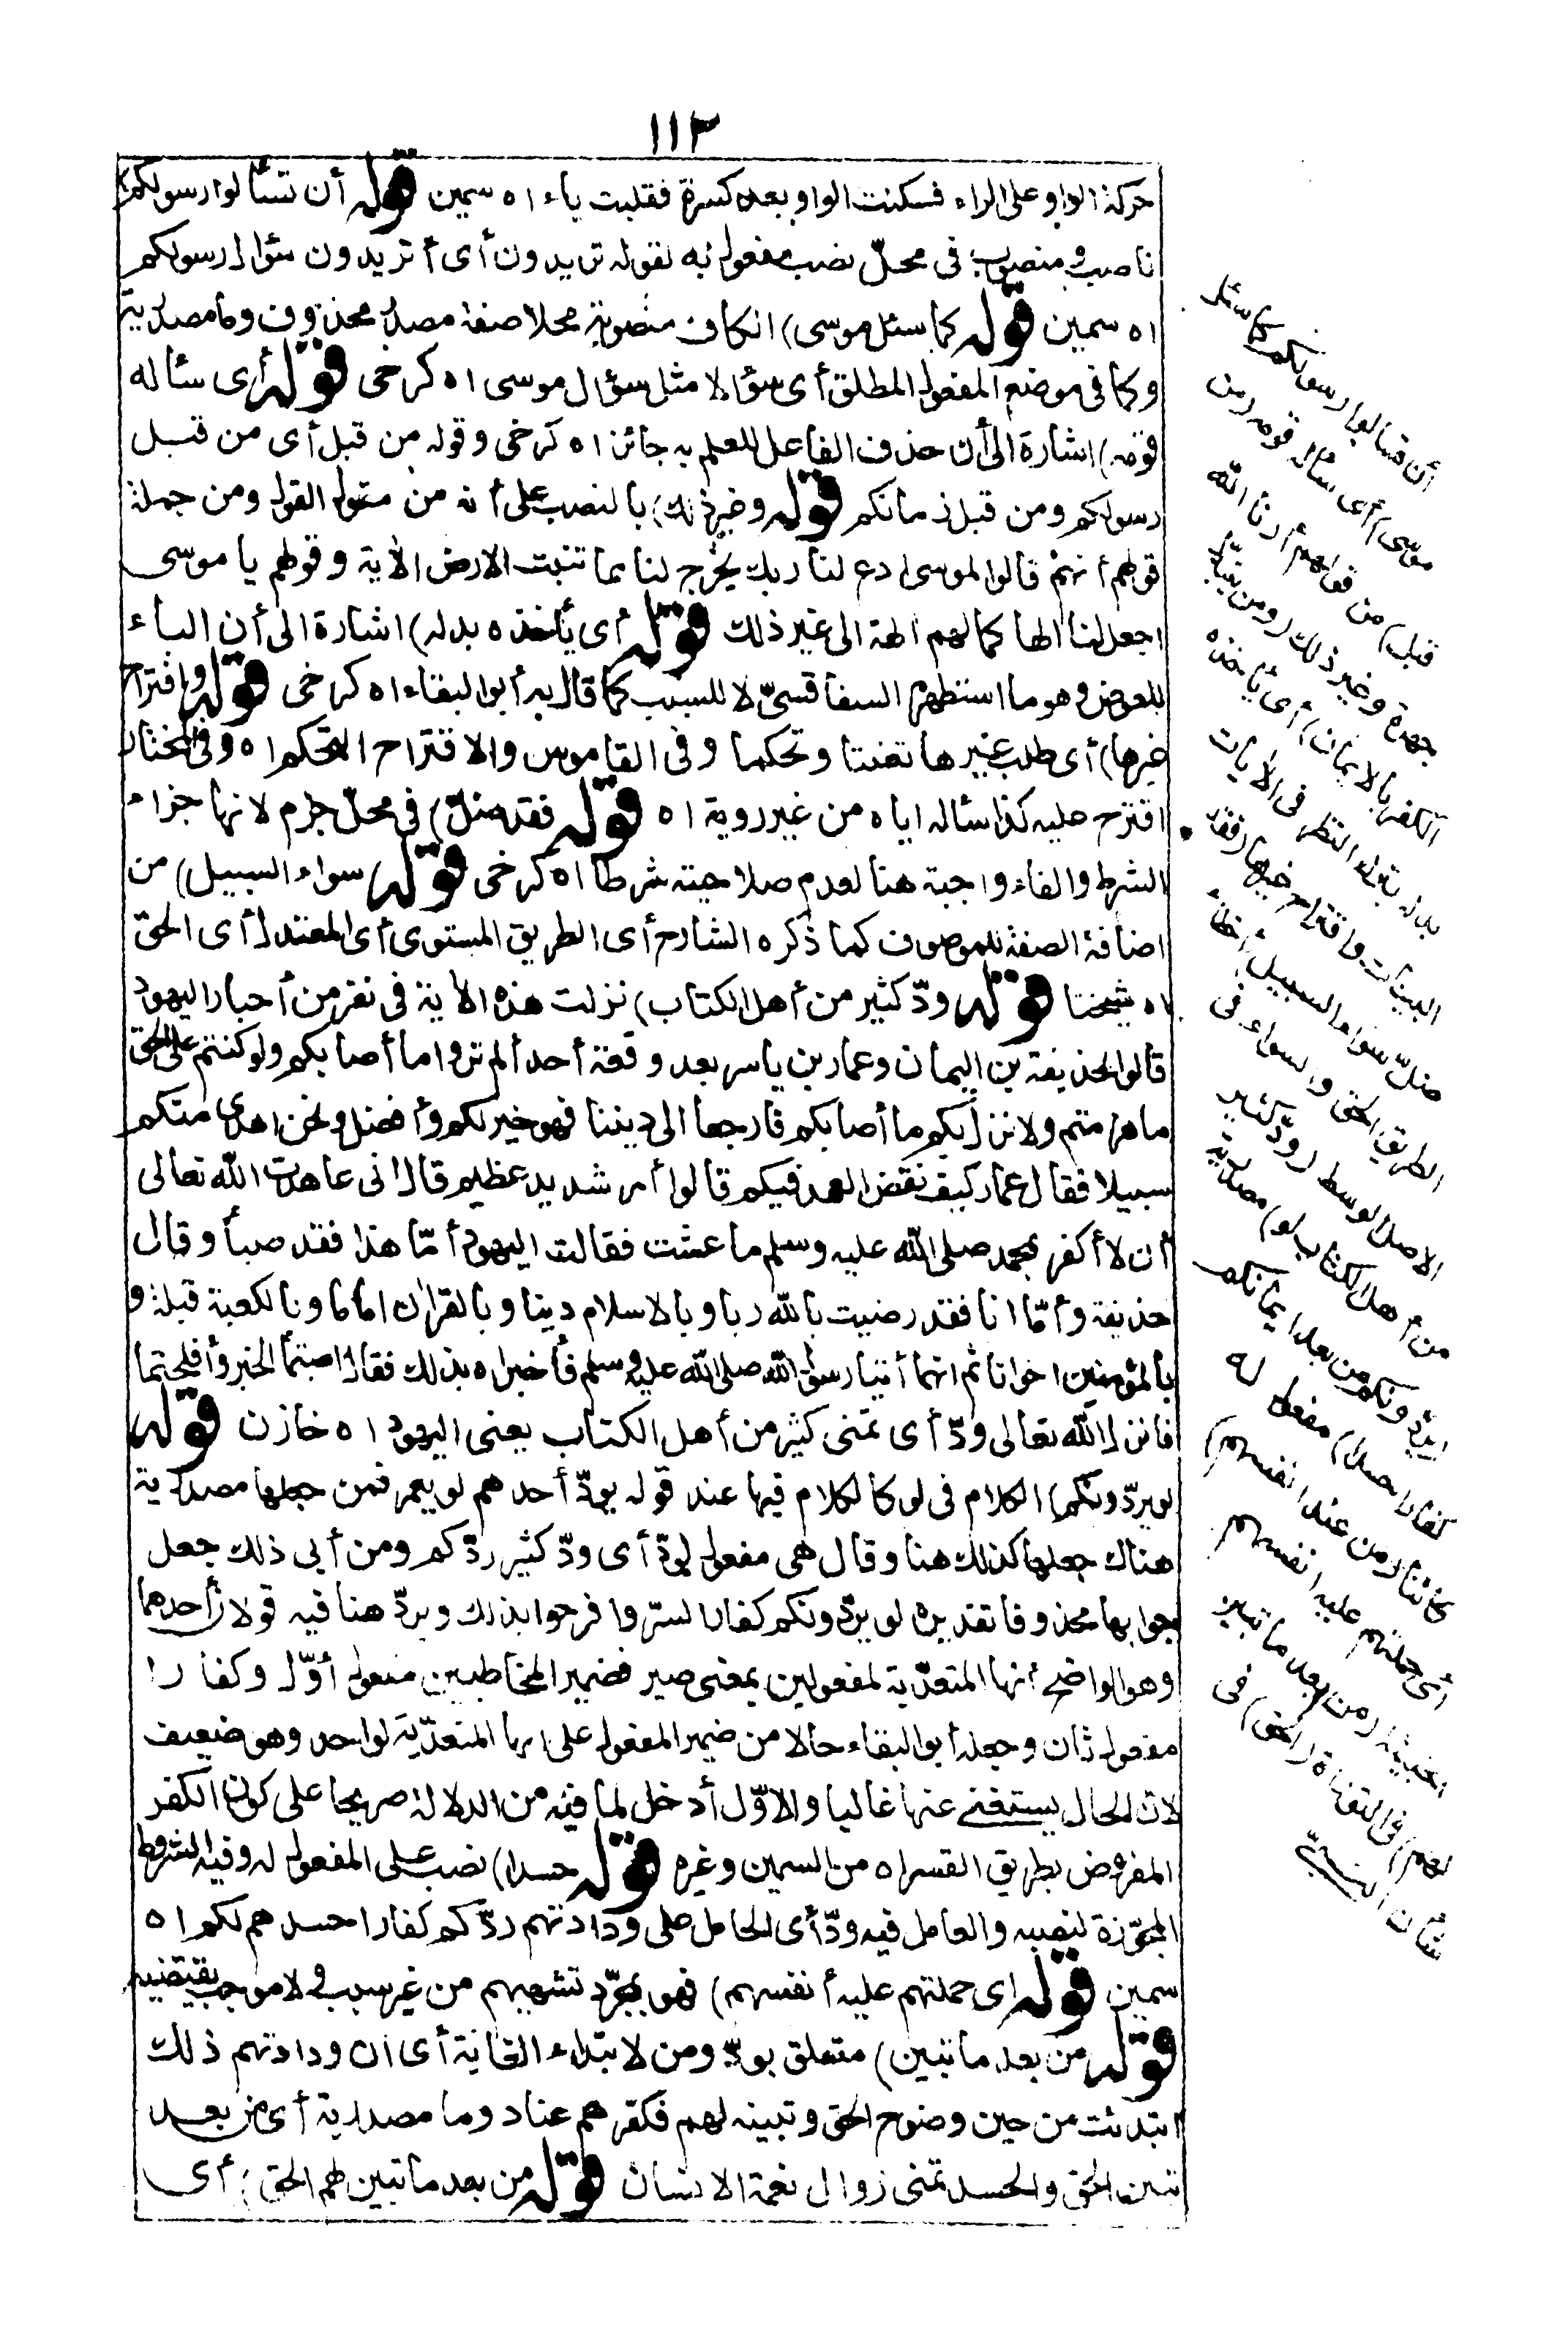 ١١٣
حركة الواو على الراء فسكنت الواو بعد كسرة فقلبت ياء اه سمين قوله أن تسألوا رسولكم)
ناصب ومنصوب في محلّ نصب مفعول به لقوله تريدون أى أتريدون سؤال رسولكم
اه سمين قوله كما سئل موسى) الكاف منصوبة محلا صفة مصدر محذوف وما مصدرية
وكما في موضع المفعول المطلق أى سؤالا مثل سؤال موسى اه كرخى قوله أى سأله
قومه) اشارة الى أن حذف الفاعل للعلم به جائز اه كرخى وقوله من قبل أى من قبل
رسولكم ومن قبل زمانكم قوله وغير ذلك) بالنصب على أنه من مقول القول ومن جملة
قولهم أنهم قالوا لموسى ادع لنا ربك يخرج لنا مما تنبت الارض الآية وقولهم يا موسى
اجعل لنا الها كما لهم آلهة الى غير ذلك قوله أى يأخذه بدله) اشارة الى أن الباء
للعوض وهو ما استظهره السفاقسىّ لا للسبب كما قال به أبو البقاء اه كرخى قوله واقتراح
غيرها) أى طلب غيرها تعنتا وتحكما وفى القاموس والاقتراح التحكم اه وفى المختار
اقترح عليه كذا سأله اياه من غير روية اه قوله فقد ضلّ) في محلّ جزم لانها جزاء
الشرط والفاء واجبة هنا لعدم صلاحيته شرطا اه كرخى قوله سواء السبيل) من
اضافة الصفة للموصوف كما ذكره الشارح أى الطريق المستوى أى المعتدل أى الحق
اه شيخنا قوله ودّ كثير من أهل الكتاب) نزلت هذه الآية فى نفر من أحبار اليهود
قالوا لحذيفة بن اليمان وعمار بن ياسر بعد وقعة أحد ألم تروا ما أصابكم ولو كنتم على الحق
ما هزمتم ولا نزل بكم ما أصابكم فارجعا الى ديننا فهو خير لكم وأفضل ونحن اهدى منكم
سبيلا فقال عمار كيف نقض العهد فيكم قالوا أمر شديد عظيم قال انى عاهدت الله تعالى
أن لا أكفر بمحمد صلى الله عليه وسلم ما عشت فقالت اليهود أمّا هذا فقد صبأ وقال
حذيفة وأمّا انا فقد رضيت بالله ربا وبالاسلام دينا وبالقرآن اماما وبالكعبة قبلة و
بالمؤمنين اخوانا ثم انهما أتيا رسول الله صلى الله عليه وسلم فأخبراه بذلك فقال اصبتما الخير وأفلحتما
فانزل الله تعالى ودّ أى تمنى كثير من أهل الكتاب يعنى اليهود اه خازن قوله
لو يردّونكم) الكلام فى لو كالكلام فيها عند قوله يودّ أحدهم لو يعمر فمن جعلها مصدرية
هناك جعلها كذلك هنا وقال هى مفعول لودّ أى ودّ كثير ردّكم ومن أبى ذلك جعل
جوابها محذوفا تقديره لو يردّونكم كفارا لسرّوا وفرحوا بذلك ويردّ هنا فيه قولان أحدهما
وهو الواضح أنها المتعدّية لمفعولين بمعنى صير فضمير المخاطبين مفعول أوّل وكفارا
مفعول ثان وجعله أبو البقاء حالا من ضمير المفعول على انها المتعدّية لواحد وهو ضعيف
لان الحال يستغنى عنها غالبا والاوّل أدخل لما فيه من الدلالة صريحا على كون الكفر
المفروض بطريق القسر اه من السمين وغيره قوله حسدا) نصب على المفعول له وفيه الشروط
المجوّزة لنصبه والعامل فيه ودّ أى الحامل على ودادتهم ردّكم كفارا حسدهم لكم اه
سمين قوله اى حملتهم عليه أنفسهم) فهو بمجرّد تشهيهم من غير سبب ولا موجب يقتضيه
قوله من بعد ما تبين) متعلق بودّ ومن لابتداء الغاية أى ان ودادتهم ذلك
ابتدئت من حين وضوح الحق وتبينه لهم فكفرهم عناد وما مصدرية أى من بعد
تبين الحق والحسد تمنى زوال نعمة الانسان قوله من بعد ما تبين لهم الحق) أى
أن تسألوا رسولكم كما سئل
موسى) أى سأله قومه (من
قبل) من قولهم أرنا الله
جهرة وغير ذلك (ومن يتبدّل
الكفر بالايمان) أى يأخذه
بدله بترك النظر فى الآيات
البينات واقتراح غيرها (فقد
ضلّ سواء السبيل) أخطأ
الطريق الحق والسواء فى
الاصل الوسط (ودّ كثير
من أهل الكتاب لو) مصدرية
(يردّونكم من بعد ايمانكم
كفارا حسدا) مفعول له
كائنا (من عند انفسهم)
أى حملتهم عليه انفسهم
الخبيثة (من بعد ما تبين
لهم) فى التوراة (الحق) فى
شأن النبىّ